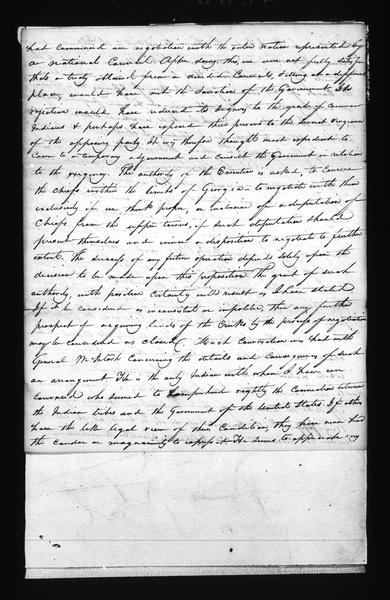 had commenced an negotiation with the entire nation represented by
a national Council. After doing this, we were not fully satisfied
that a treaty obtained from a divided Council, & sitting at a different
place, would have met the sanction of the Government. Its
rejection would have reduced the signers to the grade of common
Indians & perhaps have exposed their persons to the turmoil & vengeance
of the opposing party. It was therefore thought most expedient to
come to a temporary adjournment and consult the Government in relation
to the exigency. The authority of the Executive is asked, to convene
the Chiefs within the limits of Georgia—to negotiate with them
exclusively if we think proper, or inclusive of a deputation of
Chiefs from the upper towns, if such deputation should
present themselves and evince a disposition to negotiate to further
extent. The success of any future operation depends solely upon the
decision to be made upon this proposition. The grant of such
authority, with positive certainty will result as I have stated
If it be considered as inconsistent or impolitic, then any further
prospect of acquiring lands of the Creeks by the process of negotiation
may be considered as closed. Much conversation was had with
General McIntosh concerning the details and consequences of such
an arrangement He is the only Indian with whom I have ever
conversed who seemed to comprehend rightly the connection between
the Indian tribes and the Government of the United States. If others
have the like legal view of their condition, they have never had
the candor or magnanimity to express it. He seems to appreciate